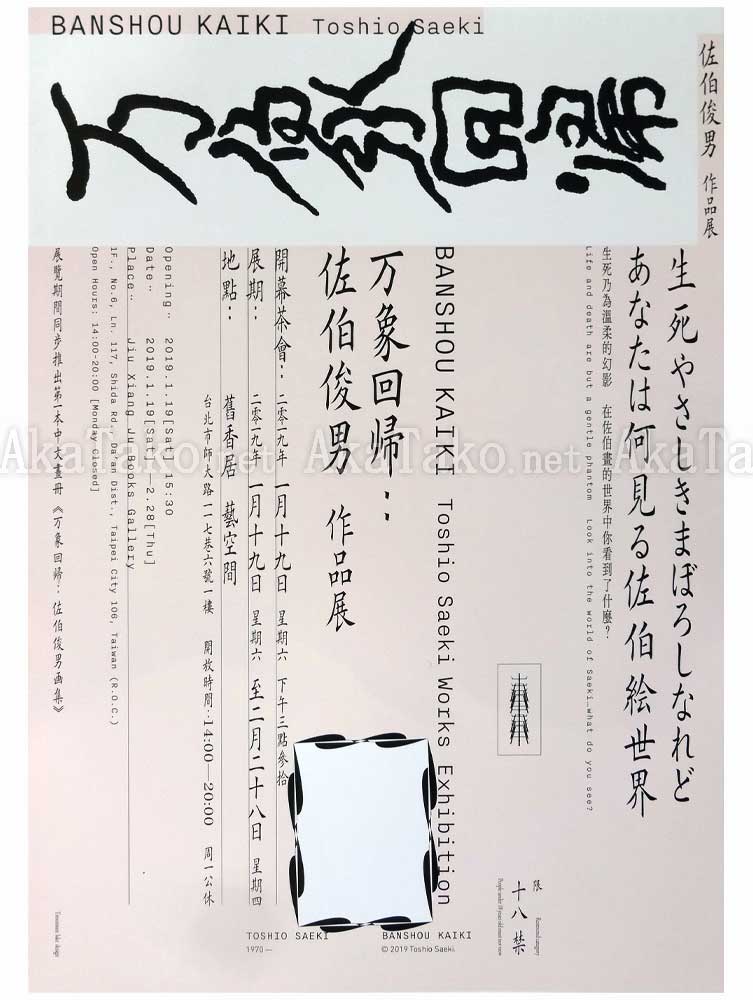 BANSHOU KAIKI Toshio Saeki
万象回帰
佐伯俊男 作品展
生死やさしきまぼろしなれど
あなたは何見る佐伯絵世界
生死乃為溫柔的幻影 在佐伯畫的世界中你看到了什麼?
Life and death are but a gentle phantom Look into the world of Saeki…what do you see?
限
十八禁
BANSHOU KAIKI Toshio Saeki Works Exhibition
万象回帰:
佐伯俊男 作品展
開幕茶會: 二零一九年 一月十九日 星期六 下午三點參拾
展期: 二零一九年 一月十九日 星期六 至二月二十八日 星期四
地點: 舊香居 藝空間
台北市師大路一一七巷六號一樓 開放時間:14:00—20:00 周一公休
Opening: 2019.1.19[Sat] 15:30
Date: 2019.1.19[Sat]—2.28[Thu]
Place: Jiu Xiang Ju Books Gallery
1F., No.6, Ln. 117, Shida Rd., Da'an Dist., Taipei City 106, Taiwan (R.O.C.)
Open Hours: 14:00-20:00 [Monday Closed]
展覽期間同步推出第一本中文畫冊《万象回帰:佐伯俊男画集》
TOSHIO SAEKI
1970—
BANSHOU KAIKI
© 2019 Toshio Saeki.
AkaTako.net AkaTako.net AkaTa